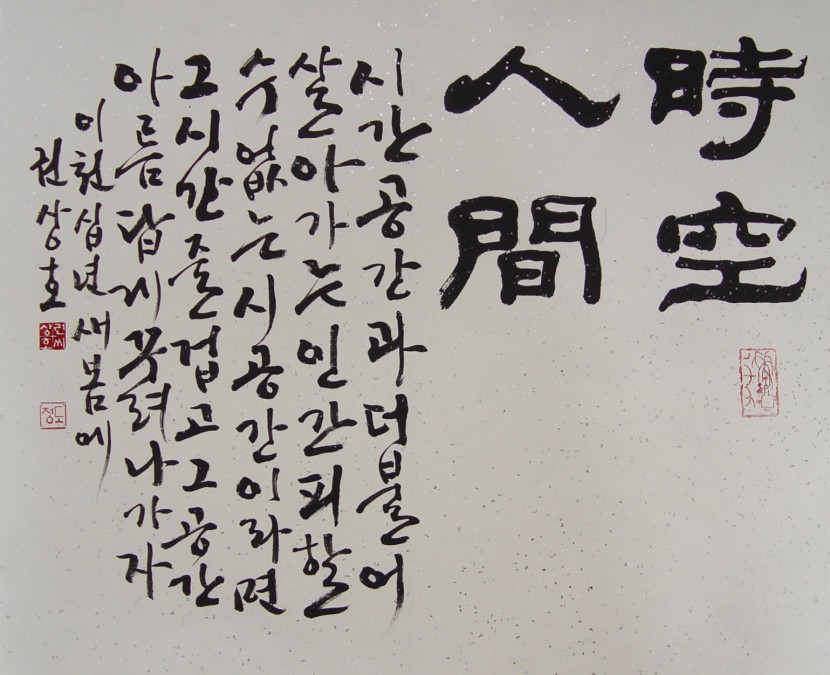 時空
人間
시간공간과더불어
살아가는인간피할
수없는시공간이라면
그시간즐겁고그공간
아름답게꾸려나가자
이천십년새봄에
권상호